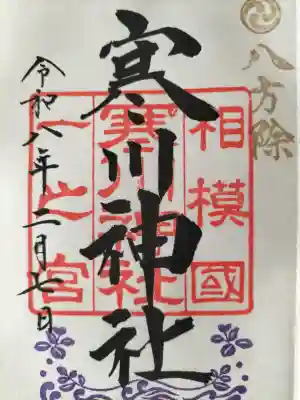 八方除
相模國
寒川神社
寒川神社
一之宮
令和八年二月七日